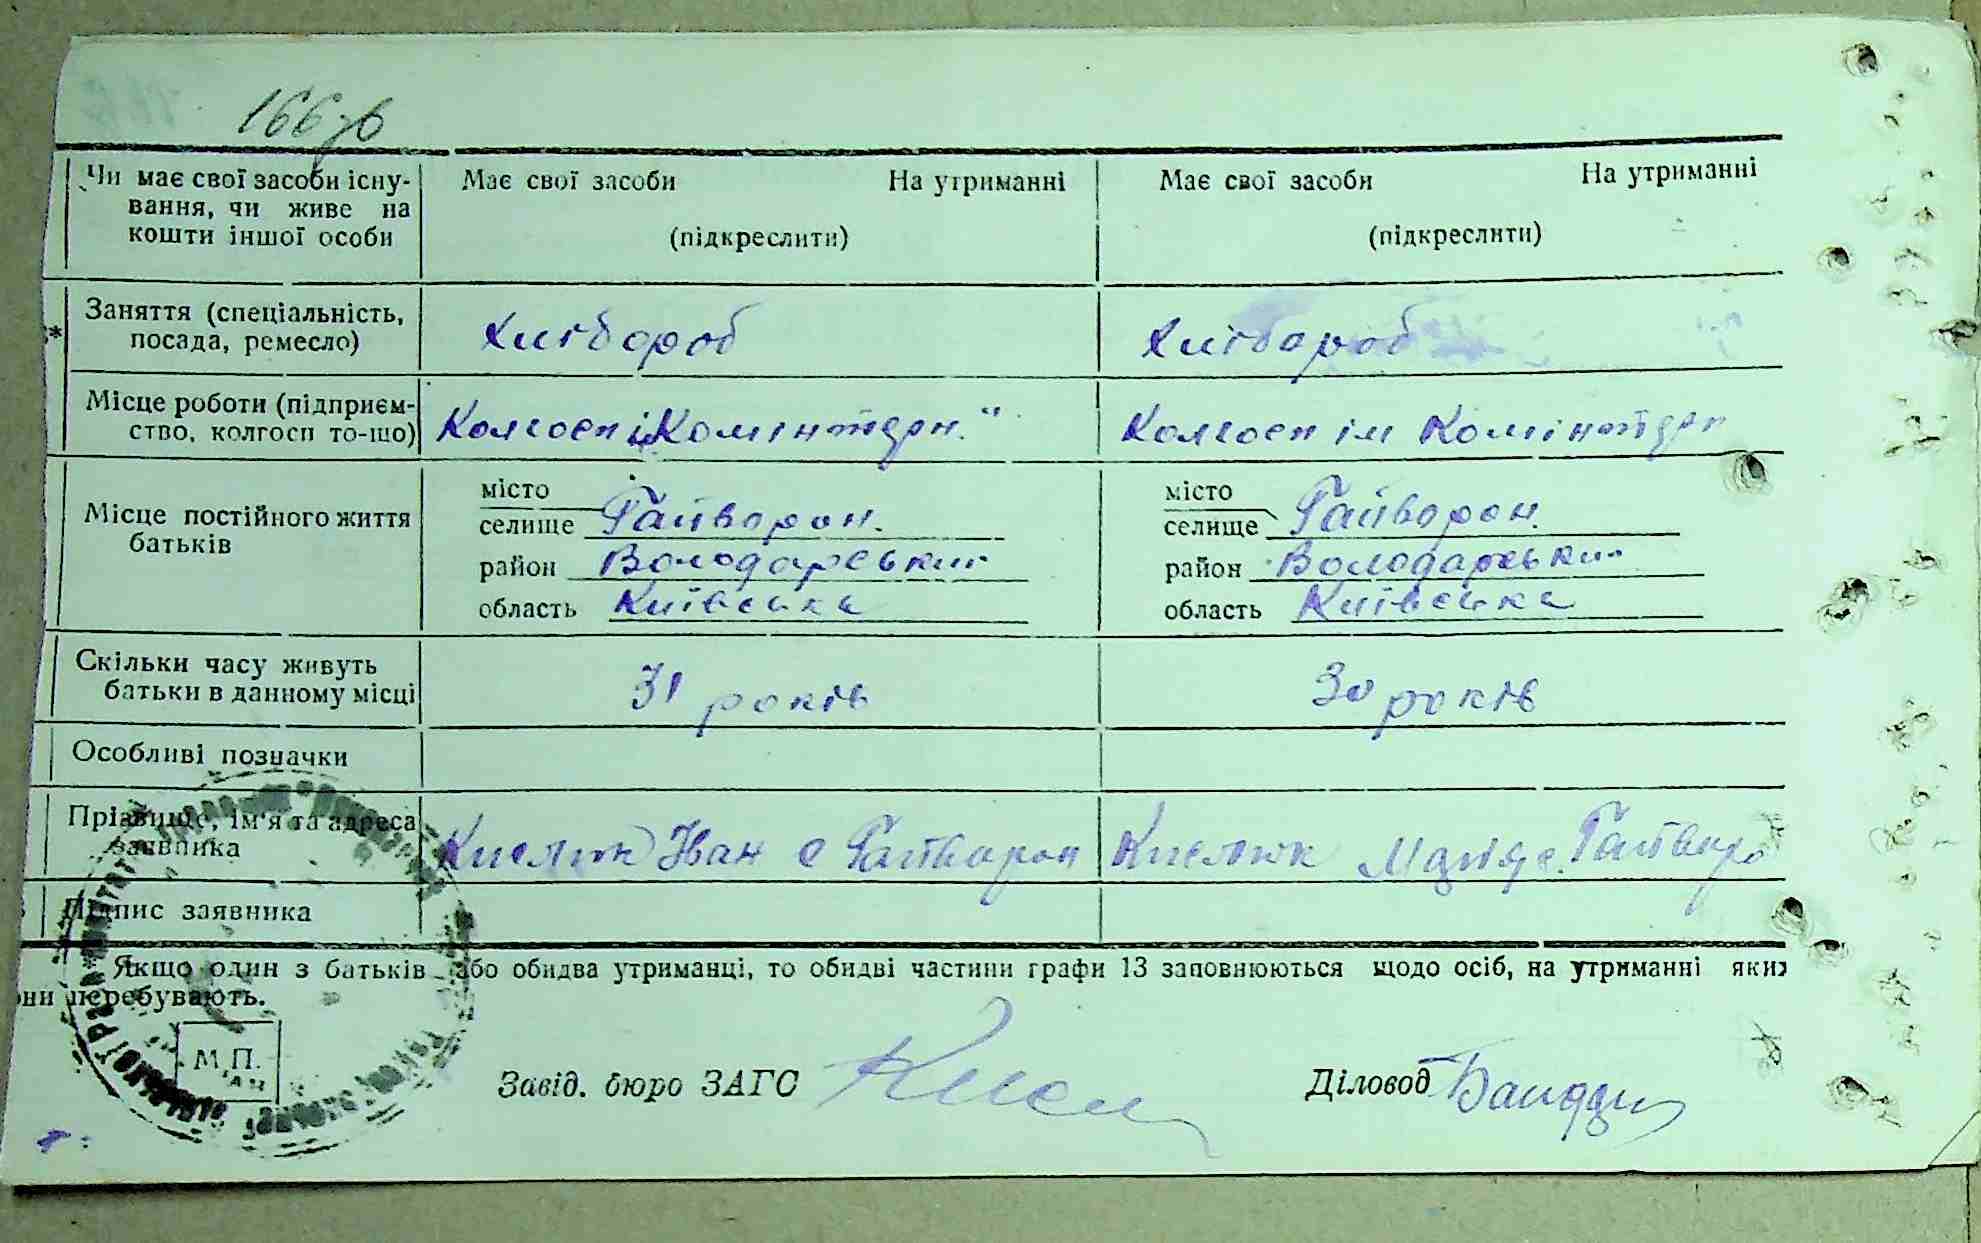 166зв
Чи має свої засоби існу- Має свої засоби На утриманні Має свої засоби На утриманні
вання, чи живе на
кошти іншої особи (підкреслити) (підкреслити)
* Заняття (спеціальність, Хлібороб Хлібороб
посада, ремесло)
Місце роботи (підприєм- Колгосп ім Комінтерн." Колгосп ім Комінтерн
ство, колгосп то-що)
місто місто
Місце постійного життя селище Гайворон. селище Гайворон.
батьків район Володарський район Володарський
область Київська область Київська
Скільки часу живуть 31 років 30 років
батьки в данному місці
Особливі позначки
Прізвище, ім'я та адреса Кислюк Іван с Гайворон Кислюк Марія с. Гайворо
заявника
Підпис заявника
* Якщо один з батьків або обидва утриманці, то обидві частини графи 13 заповнюються щодо осіб, на утриманні яких
они перебувають.
М.П.
Завід. бюро ЗАГС Кисл Діловод